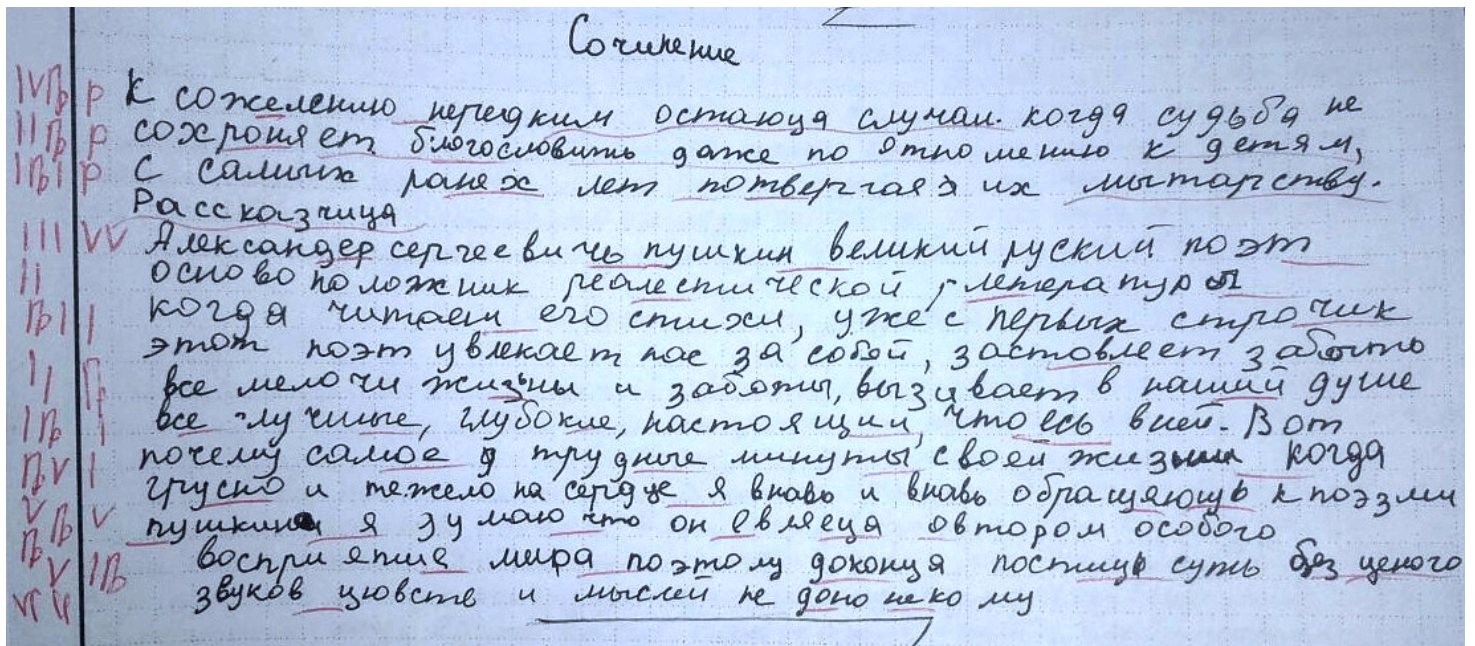 Сочинение
К сожелению нередким остаюця случаи. когда судьба не
сохроняет блогословить даже по отношению к детям,
с самых ранех лет потвергая их мытарству.
Рассказчица
Александер сергеевичь пушкин великий руский поэт
осново положник реалестической литературы
когда читаеш его стихи, уже с первых строчик
этот поэт увлекает нас за собой, застовляет забыть
все мелочи жизьни и заботы, вызывает в наший душе
все лучшые, глубокие, настоящии, что есь вней. Вот
почему самое трудные минуты своей жизни когда
грусно и тежело на сердце я внавь и внавь обращяюць к поэзии
пушкина я думаю что он евляеця овтором особого
восприятие мира поэтому доконця постичь суть без ценого
звуков цювств и мыслей не доно некому